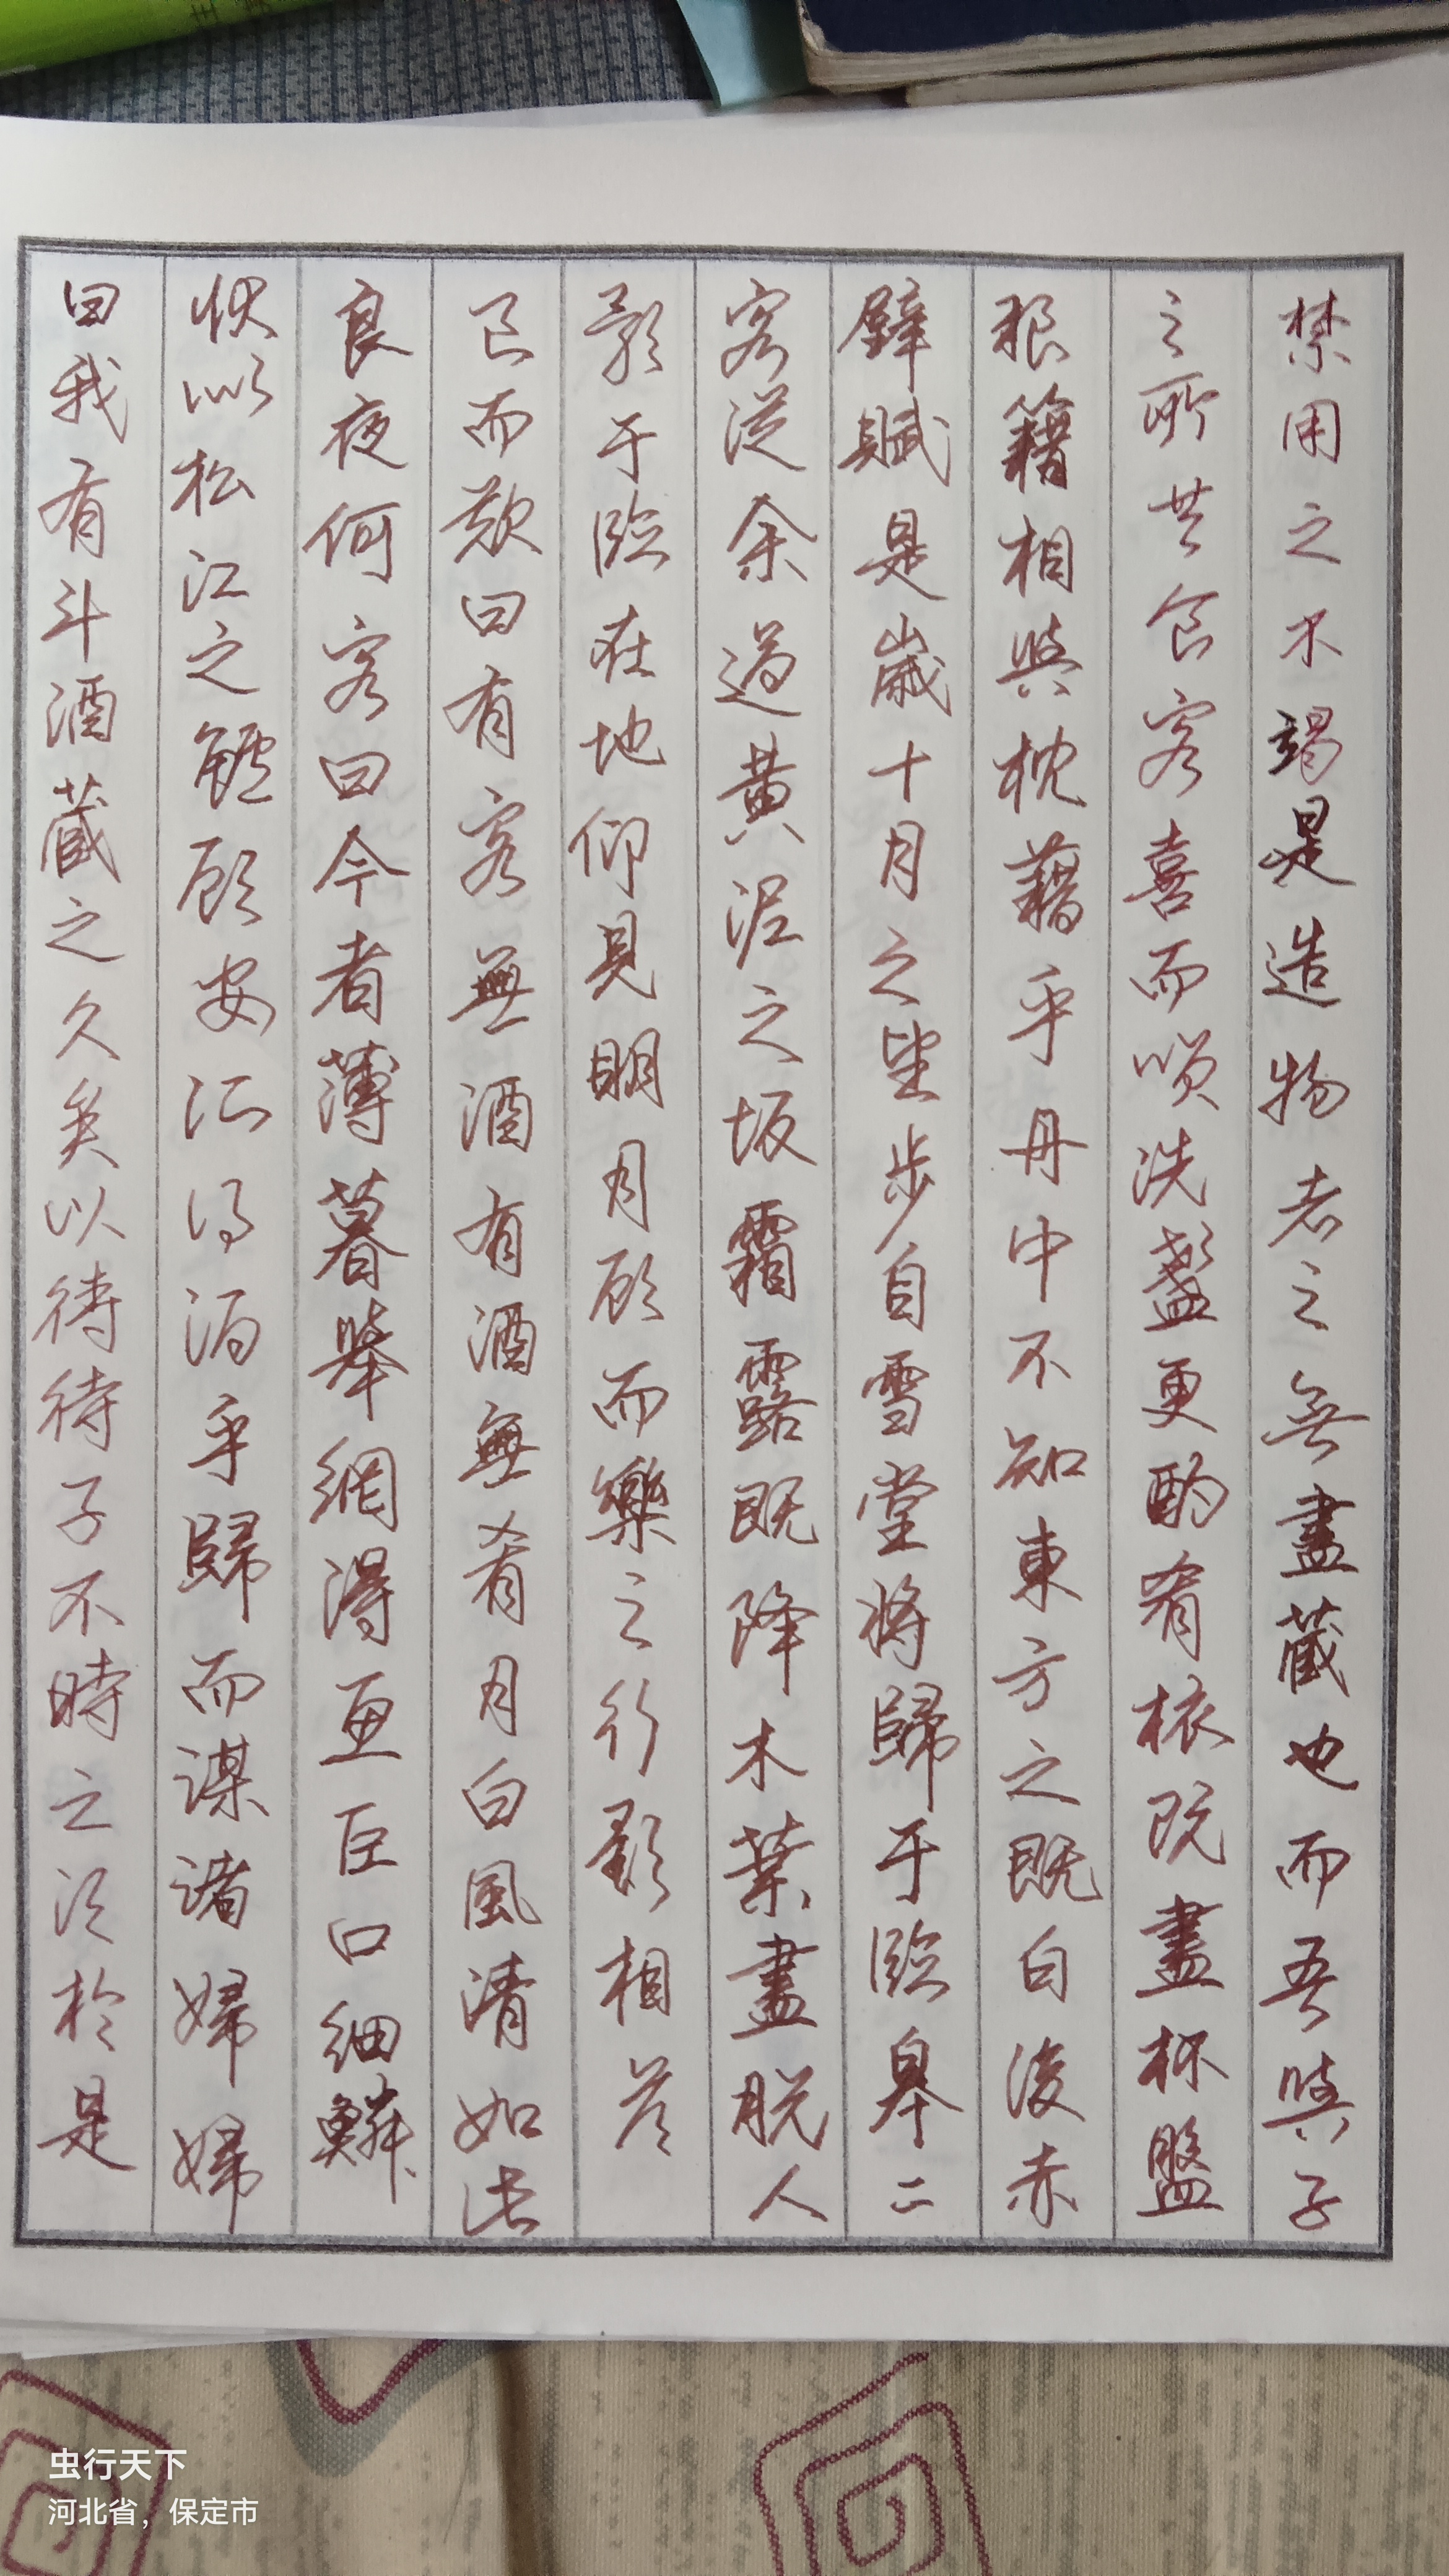 禁用之不竭是造物者之無盡藏也而吾與子
之所共食客喜而笑洗盞更酌肴核既盡杯盤
狼籍相與枕藉乎舟中不知東方之既白後赤
壁賦是歲十月之望步自雪堂將歸于臨皋二
客從余過黃泥之坂霜露既降木葉盡脫人
影于臨在地仰見明月顧而樂之行歌相答
已而歎曰有客無酒有酒無肴月白風清如此
良夜何客曰今者薄暮舉網得魚巨口細鱗
狀似松江之鱸顧安所得酒乎歸而謀諸婦婦
曰我有斗酒藏之久矣以待待子不時之須於是
虫行天下
河北省，保定市